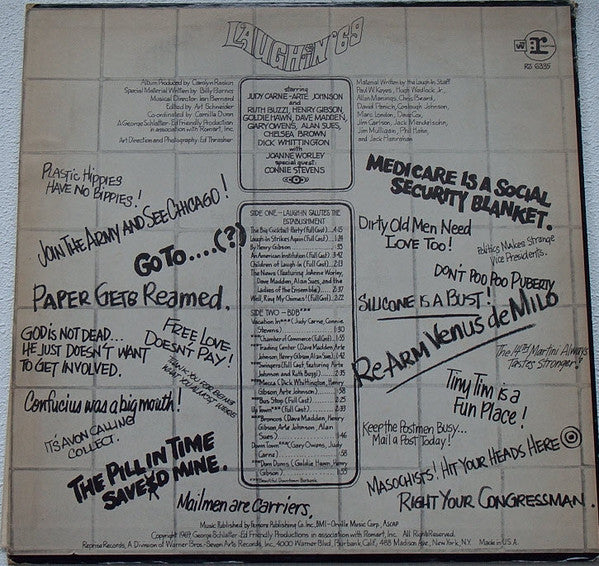 LAUGH-IN '69
W r
RS 6335
Album Produced by Carolyn Raskin
Special Material Written by Billy Barnes
Musical Director: Ian Bernard
Edited by Art Schneider
Co-ordinated by Camilla Dunn
A George Schlatter-Ed Friendly Production
in association with Romart, Inc.
Art Direction and Photography: Ed Thrasher
starring
JUDY CARNE-ARTE JOHNSON
and
RUTH BUZZI, HENRY GIBSON,
GOLDIE HAWN, DAVE MADDEN,
GARY OWENS, ALAN SUES,
CHELSEA BROWN
DICK WHITTINGTON
with
JOANNE WORLEY
special guest:
CONNIE STEVENS
Material Written by the Laugh-In Staff
Paul W. Keyes, Hugh Wedlock, Jr.
Allan Manning, Chris Beard,
David Panich, Coslough Johnson
Marc London, David Cox,
Jim Carlson, Jack Mendelsohn,
Jim Mulligan, Phil Hahn,
and Jack Hanrahan
PLASTIC HIPPIES
HAVE NO BIPPIES!
JOIN THE ARMY AND SEE CHICAGO!
GO TO....(?)
PAPER GETS REAMED.
GOD IS NOT DEAD...
HE JUST DOESN'T WANT
TO GET INVOLVED.
FREE LOVE
DOESN'T PAY!
THANK YOU FOR BEING
Confucius was a big mouth!
IT'S AVON CALLING
COLLECT.
THE PILL IN TIME
SAVED MINE.
Mailmen are Carriers.
SIDE ONE-LAUGH-IN SALUTES THE
ESTABLISHMENT
The Big Cocktail Party (Full Cast)...4:15
Laugh-In Strikes Again (Full Cast)...1:24
By Henry Gibson :35
An American Institution (Full Cast) 3:42
Children of Laugh-In (Full Cast) 2:13
The News (Featuring JoAnne Worley,
Dave Madden, Alan Sues, and the
Ladies of the Ensemble) 2:37
Well, Ring My Chimes! (Full Cast) 2:22
SIDE TWO - BDB***
Vacation In*** (Judy Carne, Connie
Stevens) 1:30
***Chamber of Commerce (Full Cast) 1:55
***Trading Center (Dave Madden, Arte
Johnson, Henry Gibson, Alan Sues) 1:42
***Swingers (Full Cast, featuring Arte
Johnson and Ruth Buzzi) 2:35
***Mecca (Dick Whittington, Henry
Gibson, Arte Johnson) :58
***Bus Stop (Full Cast) 2:01
Up Town*** (Full Cast) 2:33
***Broncos (Dave Madden, Henry
Gibson, Arte Johnson, Alan
Sues) 1:46
Down Town*** (Gary Owens, Judy
Carne) :58
***Dum Dums (Goldie Hawn, Henry
Gibson) :55
***Beautiful Downtown Burbank
MEDICARE IS A SOCIAL
SECURITY BLANKET.
Dirty Old Men Need
Love Too!
Politics Makes Strange
Vice Presidents.
DON'T POO POO PUBERTY
SILICONE IS A BUST!
Re-Arm Venus de Milo
The 14th Martini Always
Tastes Stronger!
Tiny Tim is a
Fun Place!
Keep the Postmen Busy...
Mail a Post Today!
MASOCHISTS! HIT YOUR HEADS HERE
RIGHT YOUR CONGRESSMAN.
Music Published by Pamora Publishing Co. Inc. BMI-Orville Music Corp., ASCAP
Copyright 1969, George Schlatter-Ed Friendly Productions in association with Romart, Inc. All Rights Reserved.
Reprise Records, A Division of Warner Bros.-Seven Arts Records, Inc., 4000 Warner Blvd., Burbank, Calif., 488 Madison Ave., New York, N.Y. Made in U.S.A.